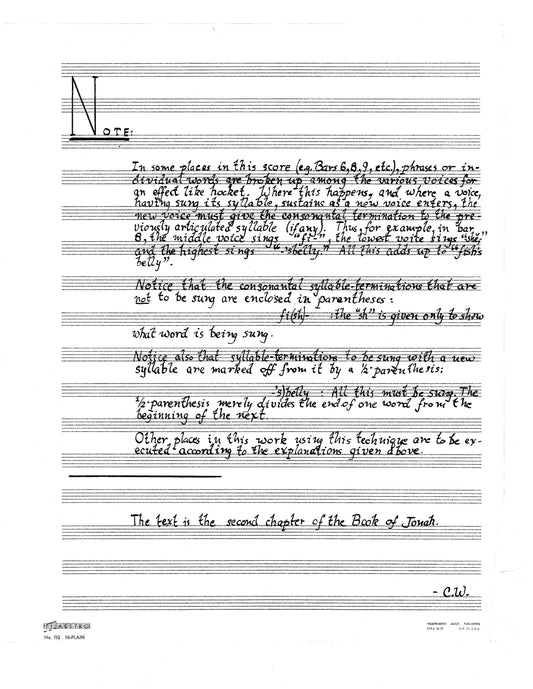 NOTE:
In some places in this score (e.g. Bars 6, 8, 9, etc.), phrases or in-
dividual words are broken up among the various voices for
an effect like hocket. Where this happens, and where a voice,
having sung its syllable, sustains as a new voice enters, the
new voice must give the consonantal termination to the pre-
viously articulated syllable (if any). Thus, for example, in bar
8, the middle voice sings "fi-", the lowest voice sings "she,"
and the highest sings "-'sbelly." All this adds up to "fish's
belly".
Notice that the consonantal syllable-terminations that are
not to be sung are enclosed in parentheses:
fi(sh)- : the "sh" is given only to show
what word is being sung.
Notice also that syllable-terminations to be sung with a new
syllable are marked off from it by a ½-parenthesis:
-'s)belly : All this must be sung. The
½-parenthesis merely divides the end of one word from the
beginning of the next.
Other places in this work using this technique are to be ex-
ecuted according to the explanations given above.
The text is the second chapter of the Book of Jonah.
- C.W.
MAESTRO
No. 110 16-PLAIN
INDEPENDENT MUSIC PUBLISHERS